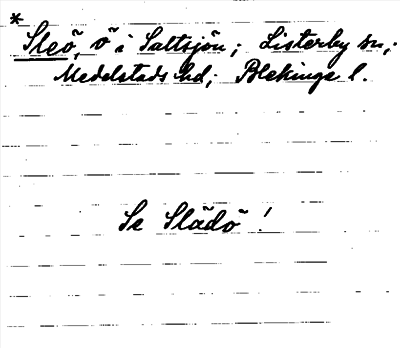 *
Sleö, ö i Saltsjön; Listerby sn;
Medelstads hd; Blekinge l.
Se Slädö !